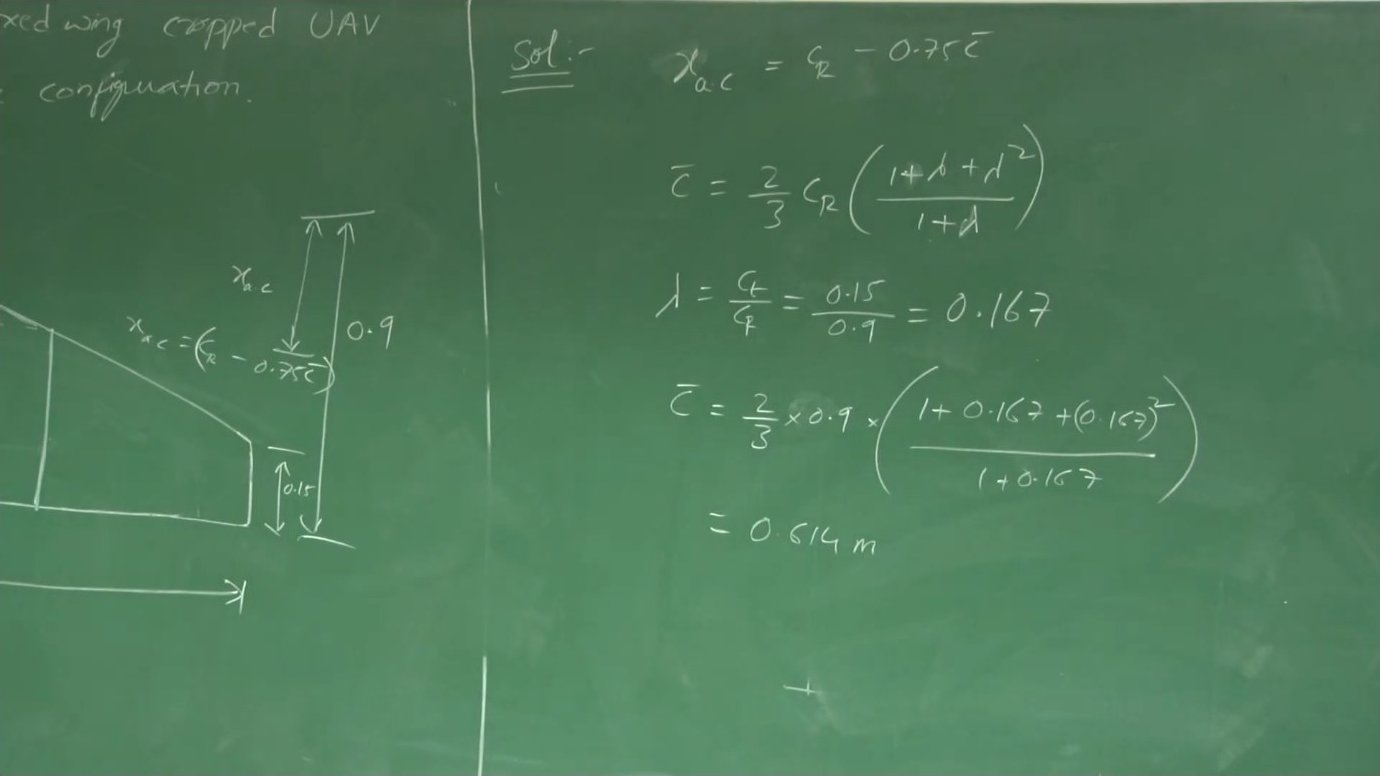 xed wing cropped UAV
configuration.
x_{a.c}
0.9
x_{a.c} = (C_R - 0.75c̄)
0.15
Sol:-
x_{a.c} = C_R - 0.75c̄
c̄ = 2/3 C_R ((1+λ+λ²)/(1+λ))
λ = C_t/C_R = 0.15/0.9 = 0.167
c̄ = 2/3 × 0.9 × ((1+0.167+(0.167)²)/(1+0.167))
= 0.614 m